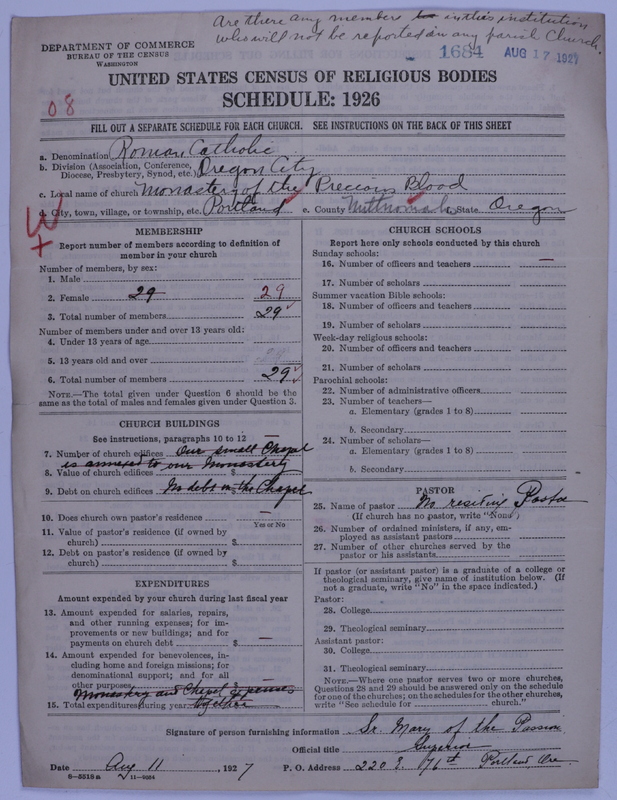 Are there any members in this institution
who will not be reported in any parish Church.
DEPARTMENT OF COMMERCE
BUREAU OF THE CENSUS
WASHINGTON
1684 AUG 17 192
UNITED STATES CENSUS OF RELIGIOUS BODIES
SCHEDULE: 1926
08
FILL OUT A SEPARATE SCHEDULE FOR EACH CHURCH. SEE INSTRUCTIONS ON THE BACK OF THIS SHEET
a. Denomination Roman Catholic
b. Division (Association, Conference, Diocese, Presbytery, Synod, etc.) Oregon City
c. Local name of church Monastery of the Precious Blood
d. City, town, village, or township, etc. Portland e. County Multnomah State Oregon
MEMBERSHIP
Report number of members according to definition of
member in your church
Number of members, by sex:
1. Male
2. Female 29 29
3. Total number of members 29
Number of members under and over 13 years old:
4. Under 13 years of age
5. 13 years old and over
6. Total number of members 29
NOTE.—The total given under Question 6 should be
same as the total of males and females given under Question 3.
CHURCH BUILDINGS
See instructions, paragraphs 10 to 12
7. Number of church edifices Our small Chapel
is annexed to our Monastery
8. Value of church edifices $
9. Debt on church edifices No debt on the Chapel
10. Does church own pastor's residence —
Yes or No
11. Value of pastor's residence (if owned by
church) $
12. Debt on pastor's residence (if owned by
church) $
EXPENDITURES
Amount expended by your church during last fiscal year
13. Amount expended for salaries, repairs,
and other running expenses; for im-
provements or new buildings; and for
payments on church debt $ —
14. Amount expended for benevolences, in-
cluding home and foreign missions; for
denominational support; and for all
other purposes —
Monastery and Chapel Expenses
15. Total expenditures during year together
CHURCH SCHOOLS
Report here only schools conducted by this church
Sunday schools:
16. Number of officers and teachers —
17. Number of scholars
Summer vacation Bible schools:
18. Number of officers and teachers
19. Number of scholars
Week-day religious schools:
20. Number of officers and teachers
21. Number of scholars
Parochial schools:
22. Number of administrative officers
23. Number of teachers—
a. Elementary (grades 1 to 8)
b. Secondary
24. Number of scholars—
a. Elementary (grades 1 to 8)
b. Secondary
PASTOR
25. Name of pastor No resiting Pastor
(If church has no pastor, write "None")
26. Number of ordained ministers, if any, em-
ployed as assistant pastors
27. Number of other churches served by the
pastor or his assistants
If pastor (or assistant pastor) is a graduate of a college or
theological seminary, give name of institution below. (If
not a graduate, write "No" in the space indicated.)
Pastor:
28. College
29. Theological seminary
Assistant pastor:
30. College
31. Theological seminary
NOTE.—Where one pastor serves two or more churches,
Questions 28 and 29 should be answered only on the schedule
for one of the churches; on the schedules for the other churches,
write "See schedule for church."
Signature of person furnishing information Sr. Mary of the Passion
Official title Superior
Date Aug 11, 1927 P. O. Address 220 E. 76th Portland, Ore.
8—5518a 11—9084